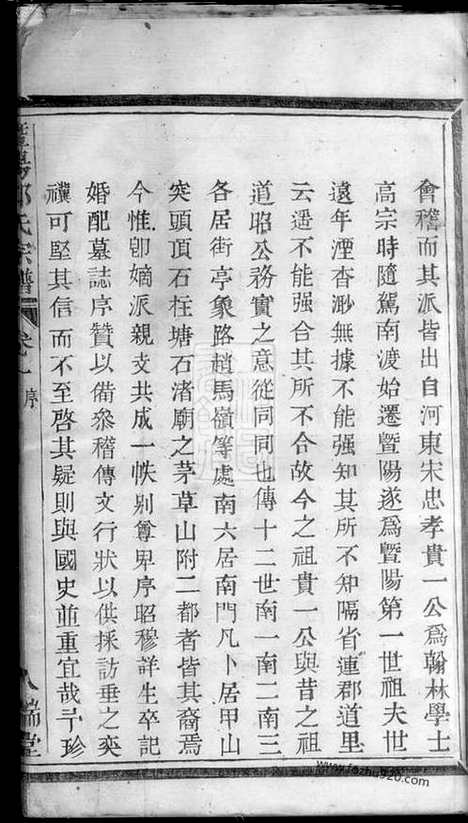 會稽而其派皆出自河東宋忠孝貴一公爲翰林學士
高宗時隨駕南渡始遷暨陽遂爲暨陽第一世祖夫世
遠年湮杳渺無據不可能强知其所不知隔省連郡道里
云遥不能强合其所不合故今之祖貴一公與昔之祖
道昭公務實之意從同同也傳十二世南一南二南三
各居街亭象路趙馬嶺等處南六居南門凡卜居甲山
突頭頂石柱塘石渚廟之茅草山附二都者皆其裔焉
今惟卽嫡派親支共成一帙别尊卑序昭穆詳生卒記
婚配墓誌序贊以備叅稽傳文行狀以供採訪垂之奕
禩可堅其信而不至啓其疑則與國史並重宜哉予珍
氏宗譜 卷一 序
八端堂
www.fozhu920.com